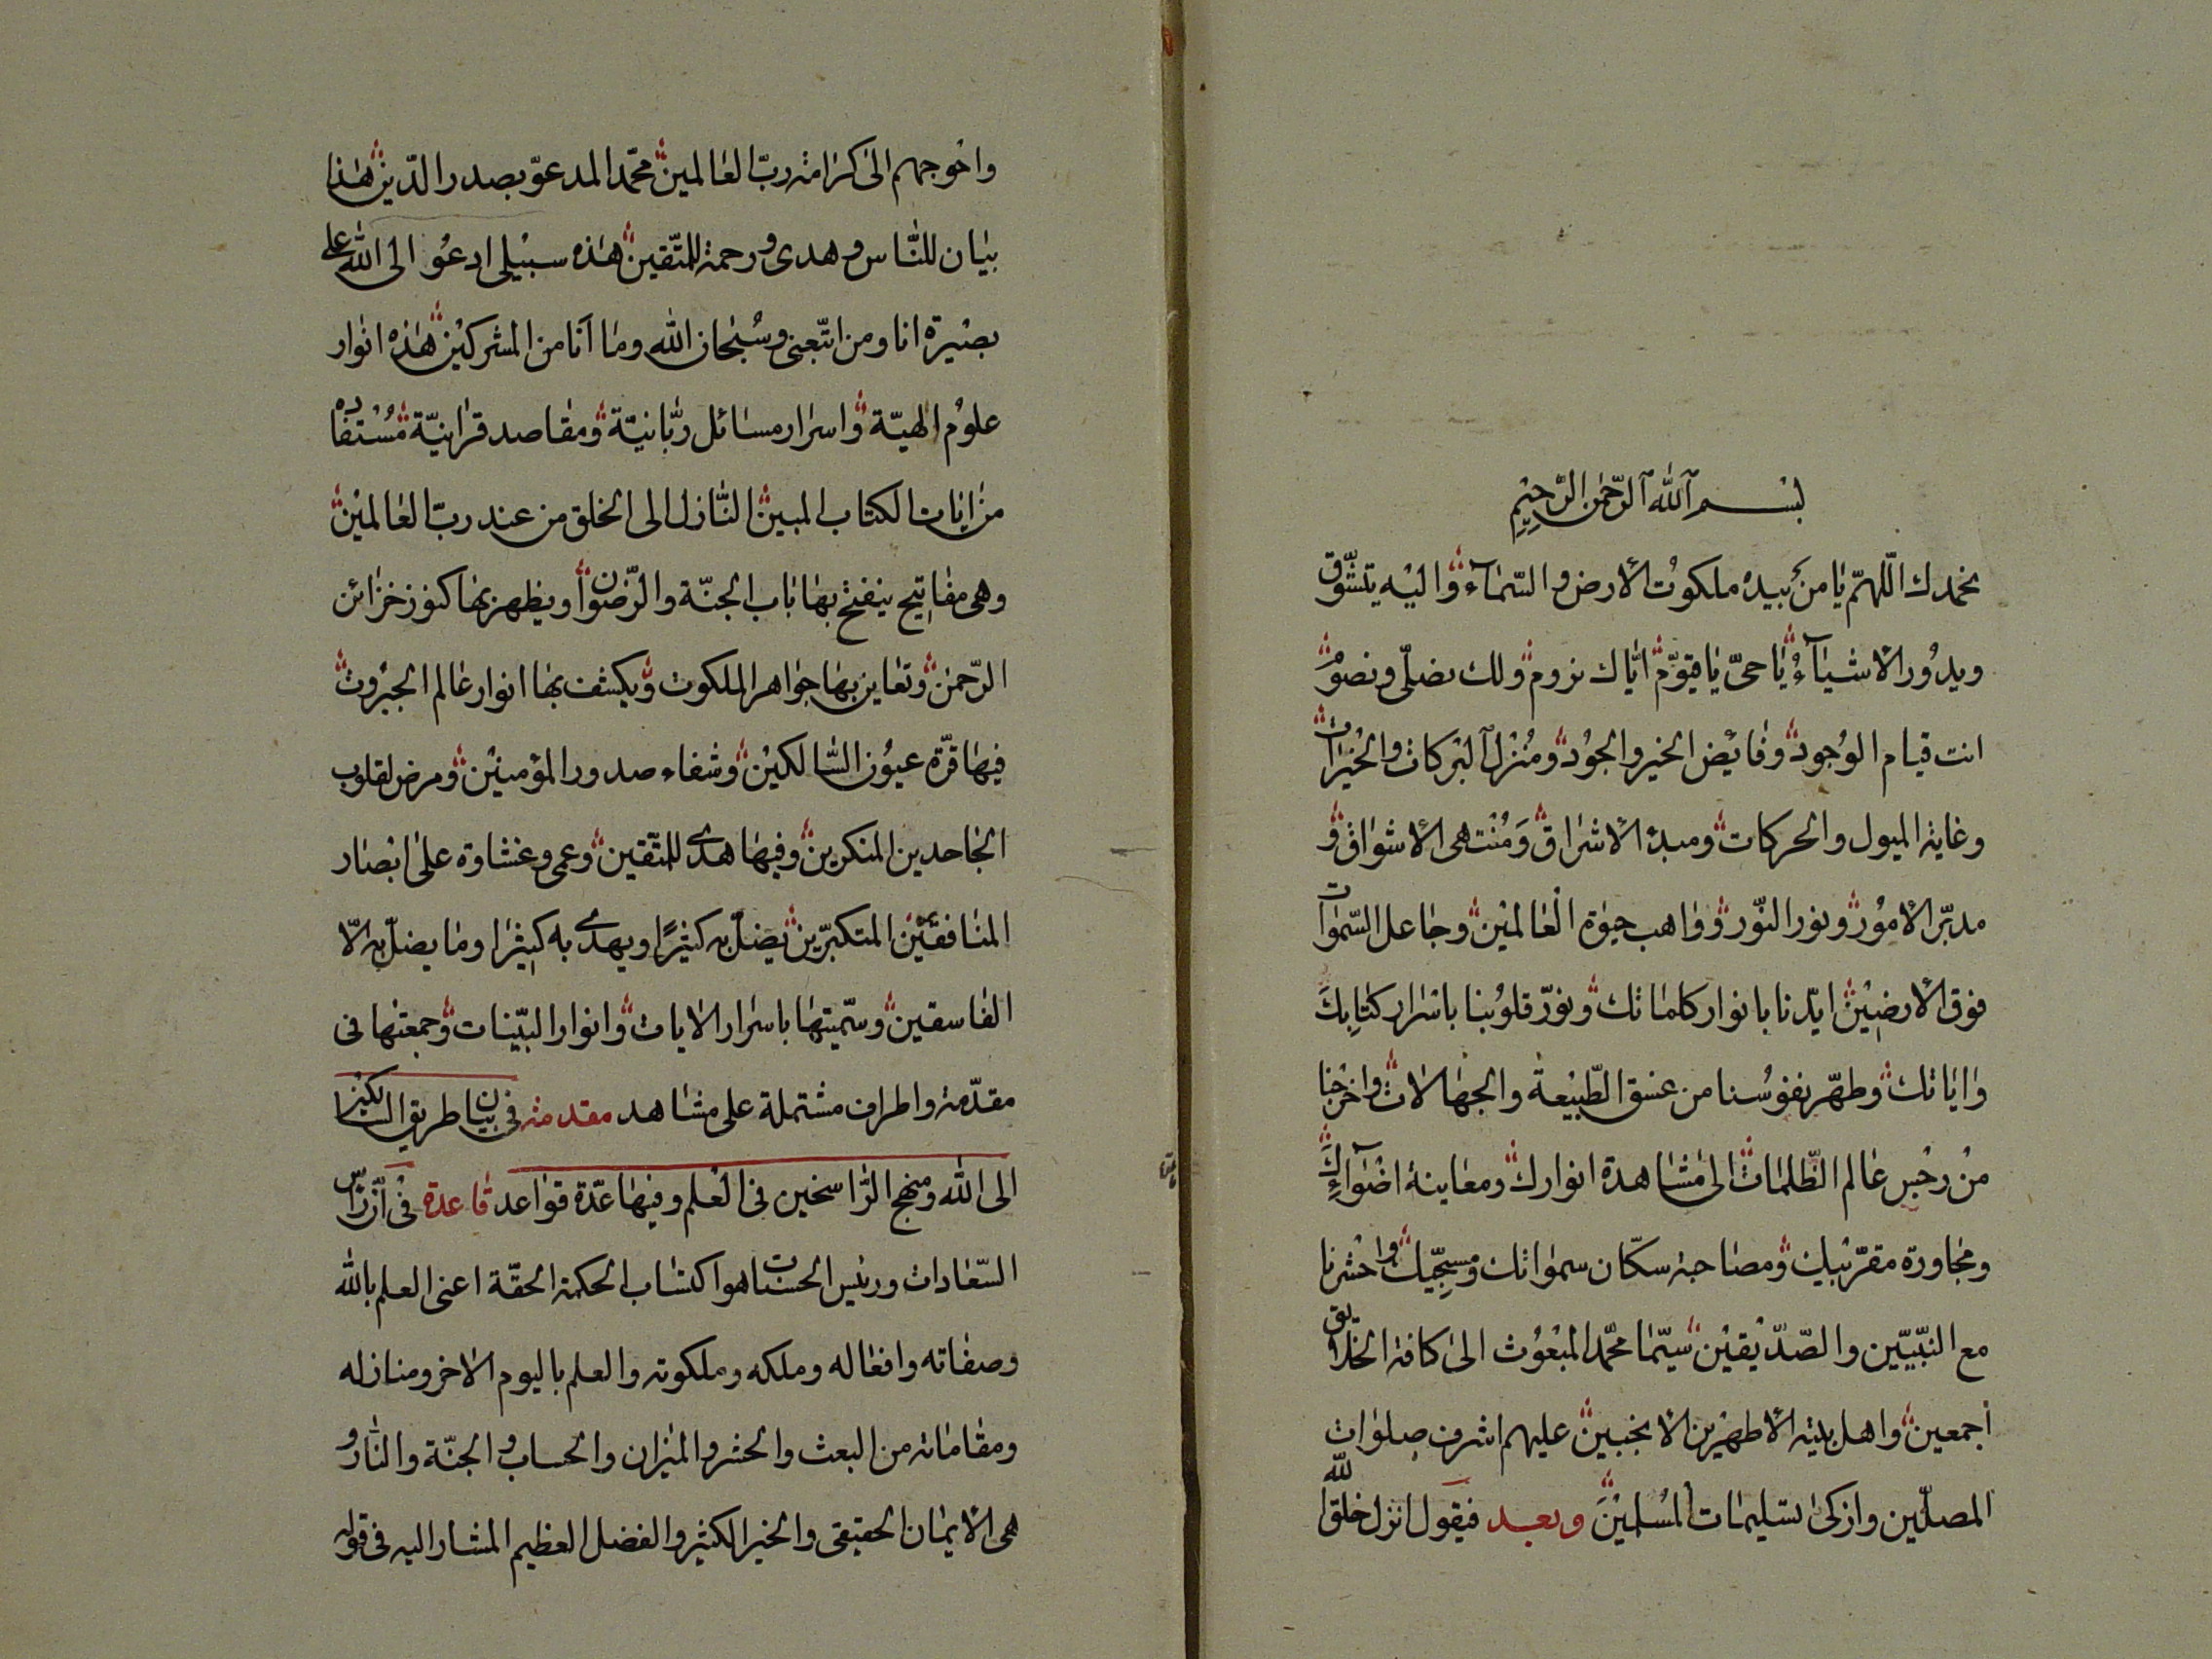 بسم الله الرحمن الرحيم
نحمدك اللهم يا من بيده ملكوت الارض والسماء واليه يتشوق
ويدور الاشياء يا حى يا قيوم اياك نروم ولك نصلى ونصوم
انت قيام الوجود وفايض الخير والجود ومنزل البركات والخيرات
وغاية الميول والحركات ومبدء الاشراق ومنتهى الاشواق و
مدبر الامور ونور النور وواهب حيوة العالمين وجاعل السموات
فوق الارضين ايدنا بانوار كلماتك ونور قلوبنا باسرار كتابك
واياتك وطهر نفوسنا من غسق الطبيعة والجهالات واخرجنا
من رجس عالم الظلمات الى مشاهدة انوارك ومعاينة اضوائك
ومجاورة مقربيك ومصاحبة سكان سمواتك ومسبحيك واحشرنا
مع النبيين والصديقين سيما محمد المبعوث الى كافة الخلايق
اجمعين واهل بيته الاطهرين الانجبين عليهم اشرف صلوات
المصلين وازكى تسليمات المسلمين وبعد فيقول انزل خلق الله
واحوجهم الى كرامة رب العالمين محمد المدعو بصدر الدين هذا
بيان للناس وهدى ورحمة للمتقين هذه سبيلى ادعو الى الله على
بصيرة انا ومن اتبعنى وسبحان الله وما انا من المشركين هذه انوار
علوم الهية واسرار مسائل ربانية ومقاصد قرانية مستفاده
من ايات الكتاب المبين النازل الى الخلق من عند رب العالمين
وهى مفاتيح ينفتح بها باب الجنة والرضوان ويظهر بها كنوز خزائن
الرحمن وتعاين بها جواهر الملكوت ويكشف بها انوار عالم الجبروت
فيها قرة عيون السالكين وشفاء صدور المؤمنين ومرض لقلوب
الجاحدين المنكرين وفيها هدى للمتقين وعمى وغشاوة على ابصار
المنافقين المتكبرين يضل به كثيرا ويهدى به كثيرا وما يضل به الا
الفاسقين وسميتها باسرار الايات وانوار البينات وجمعتها فى
مقدمة واطراف مشتملة على مشاهد مقدمة فى بيان طريق السالكين
الى الله ومنهج الراسخين فى العلم وفيها عدة قواعد قاعدة فى ان راس
السعادات ورئيس الحسنات هو اكتساب الحكمة الحقة اعنى العلم بالله
وصفاته وافعاله وملكه وملكوته والعلم باليوم الاخر ومنازله
ومقاماته من البعث والحشر والميزان والحساب والجنة والنار و
هى الايمان الحقيقى والخير الكثير والفضل العظيم المشار اليه فى قوله